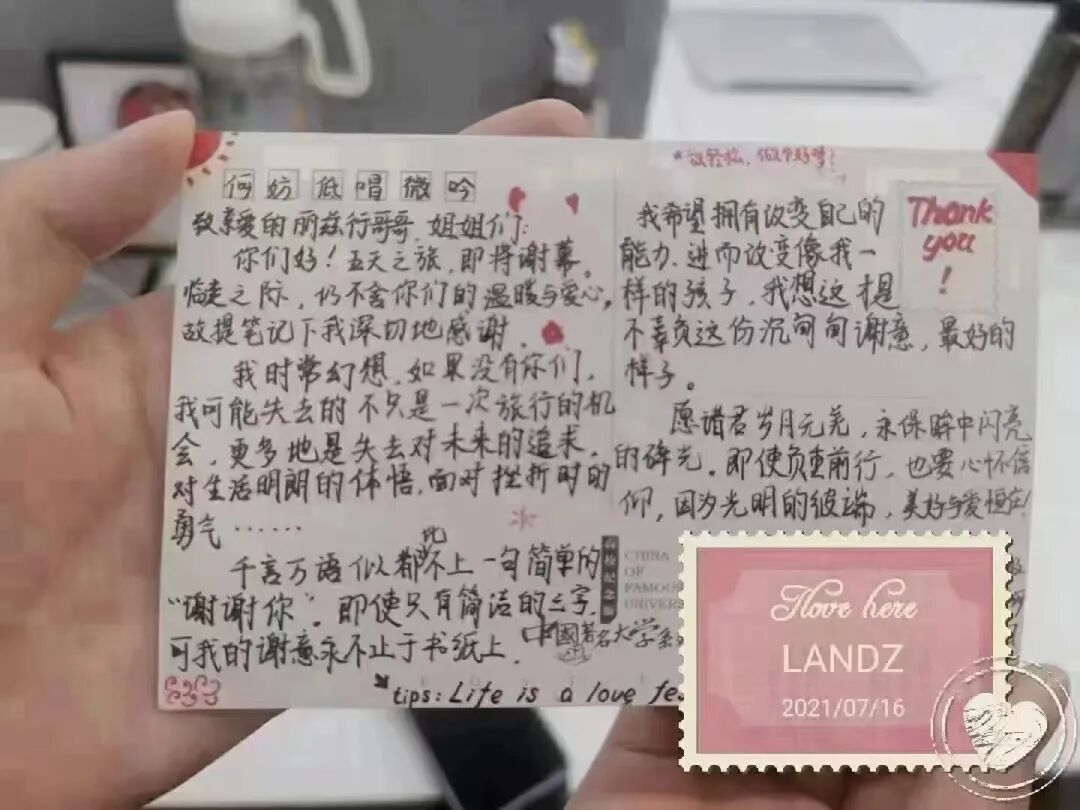 何妨低唱微吟
致亲爱的丽兹行哥哥、姐姐们:
你们好!五天之旅,即将谢幕。
临走之际,仍不舍你们的温暖与爱心,
故提笔记下我深切地感谢.
我时常幻想,如果没有你们,
我可能失去的不只是一次旅行的机
会,更多地是失去对未来的追求,
对生活明朗的体悟,面对挫折时的
勇气……
千言万语似都比不上一句简单的
“谢谢你”.即使只有简洁的三字,
可我的谢意永不止于书纸上.
tips: Life is a love
放轻松,做个好梦!
Thank
you
!
我希望拥有改变自己的
能力,进而改变像我一
样的孩子,我想这才是
不辜负这份沉甸甸谢意,最好的
样子。
愿诸君岁月无恙,永保眸中闪亮
的碎光。即使负重前行,也要心怀信
仰,因为光明的彼端,美好与爱恒在!
CHINA
OF
FAMOUS
UNIVERS
中國著名大学系
I love here
LANDZ
2021/07/16